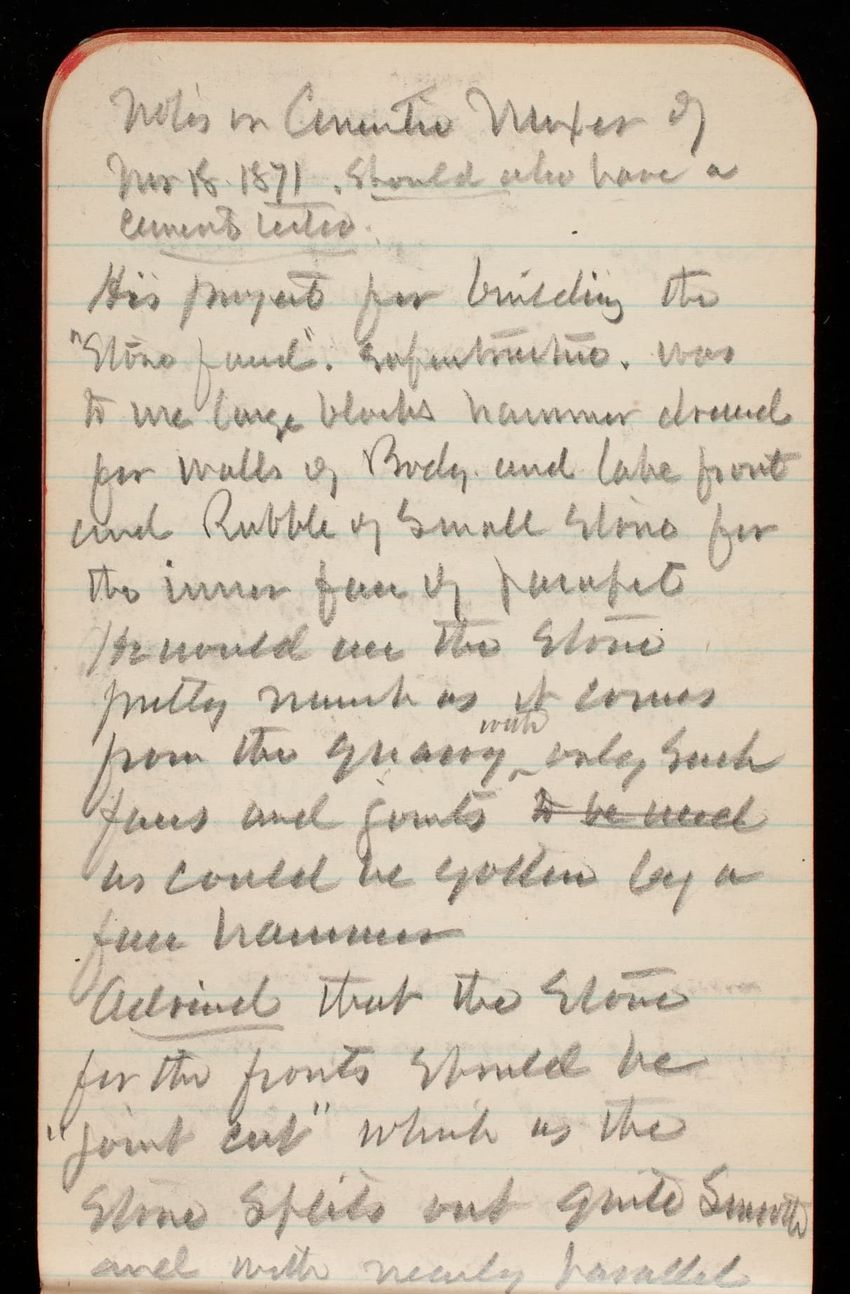 Notes on Concrete Mixer of
Nov 18 1871. Should also have a
cement tester.
His project for building the
"Stone faced". Superstructure. was
to use large blocks hammer dressed
for walls of Body and lake front
and Rubble of Small Stone for
the inner face of parapet
He would use the Stone
pretty much as it comes
from the quarry with only such
faces and joints to be used
as could be gotten by a
face hammer
Advised that the Stone
for the fronts should be
"joint cut" which as the
Stone Splits out quite Smooth
and with nearly parallel